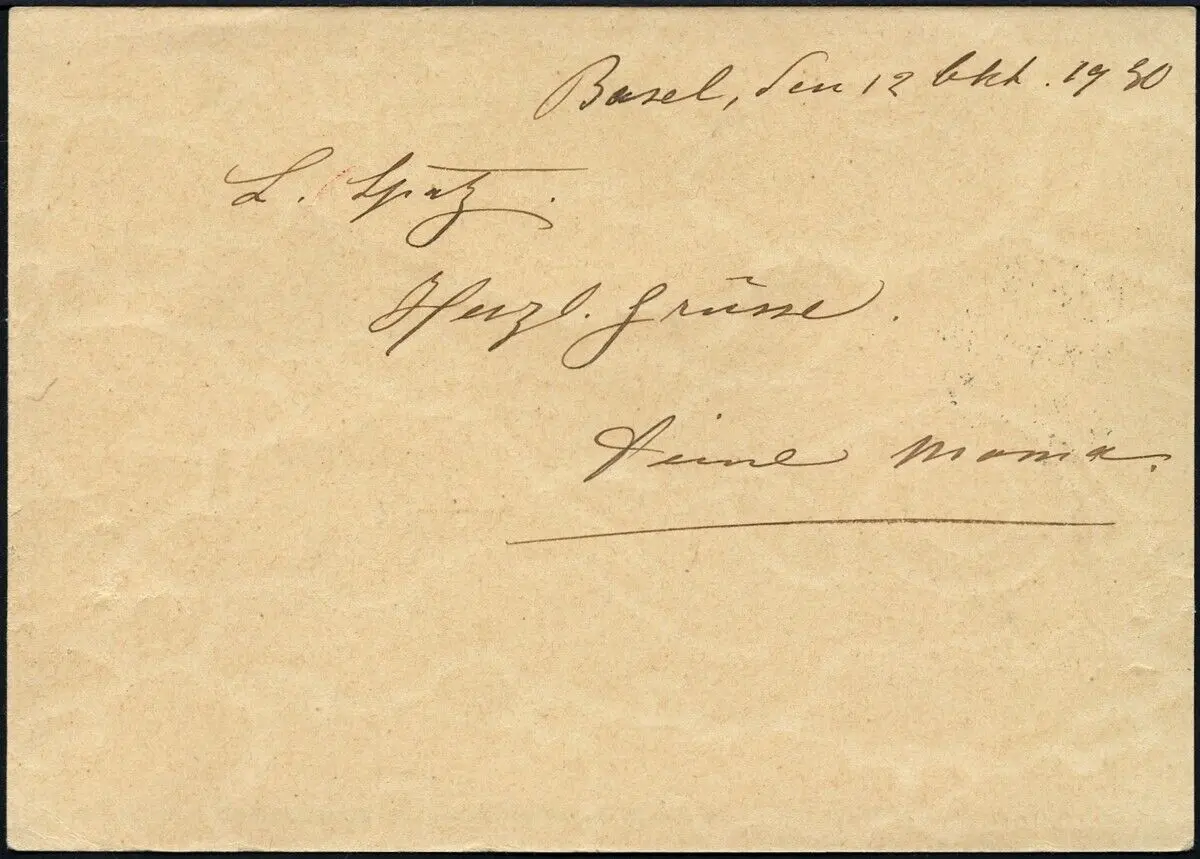 Basel, den 12 Okt. 1930
L. Spatz.
Herzl. Grüsse.
Deine Mama.